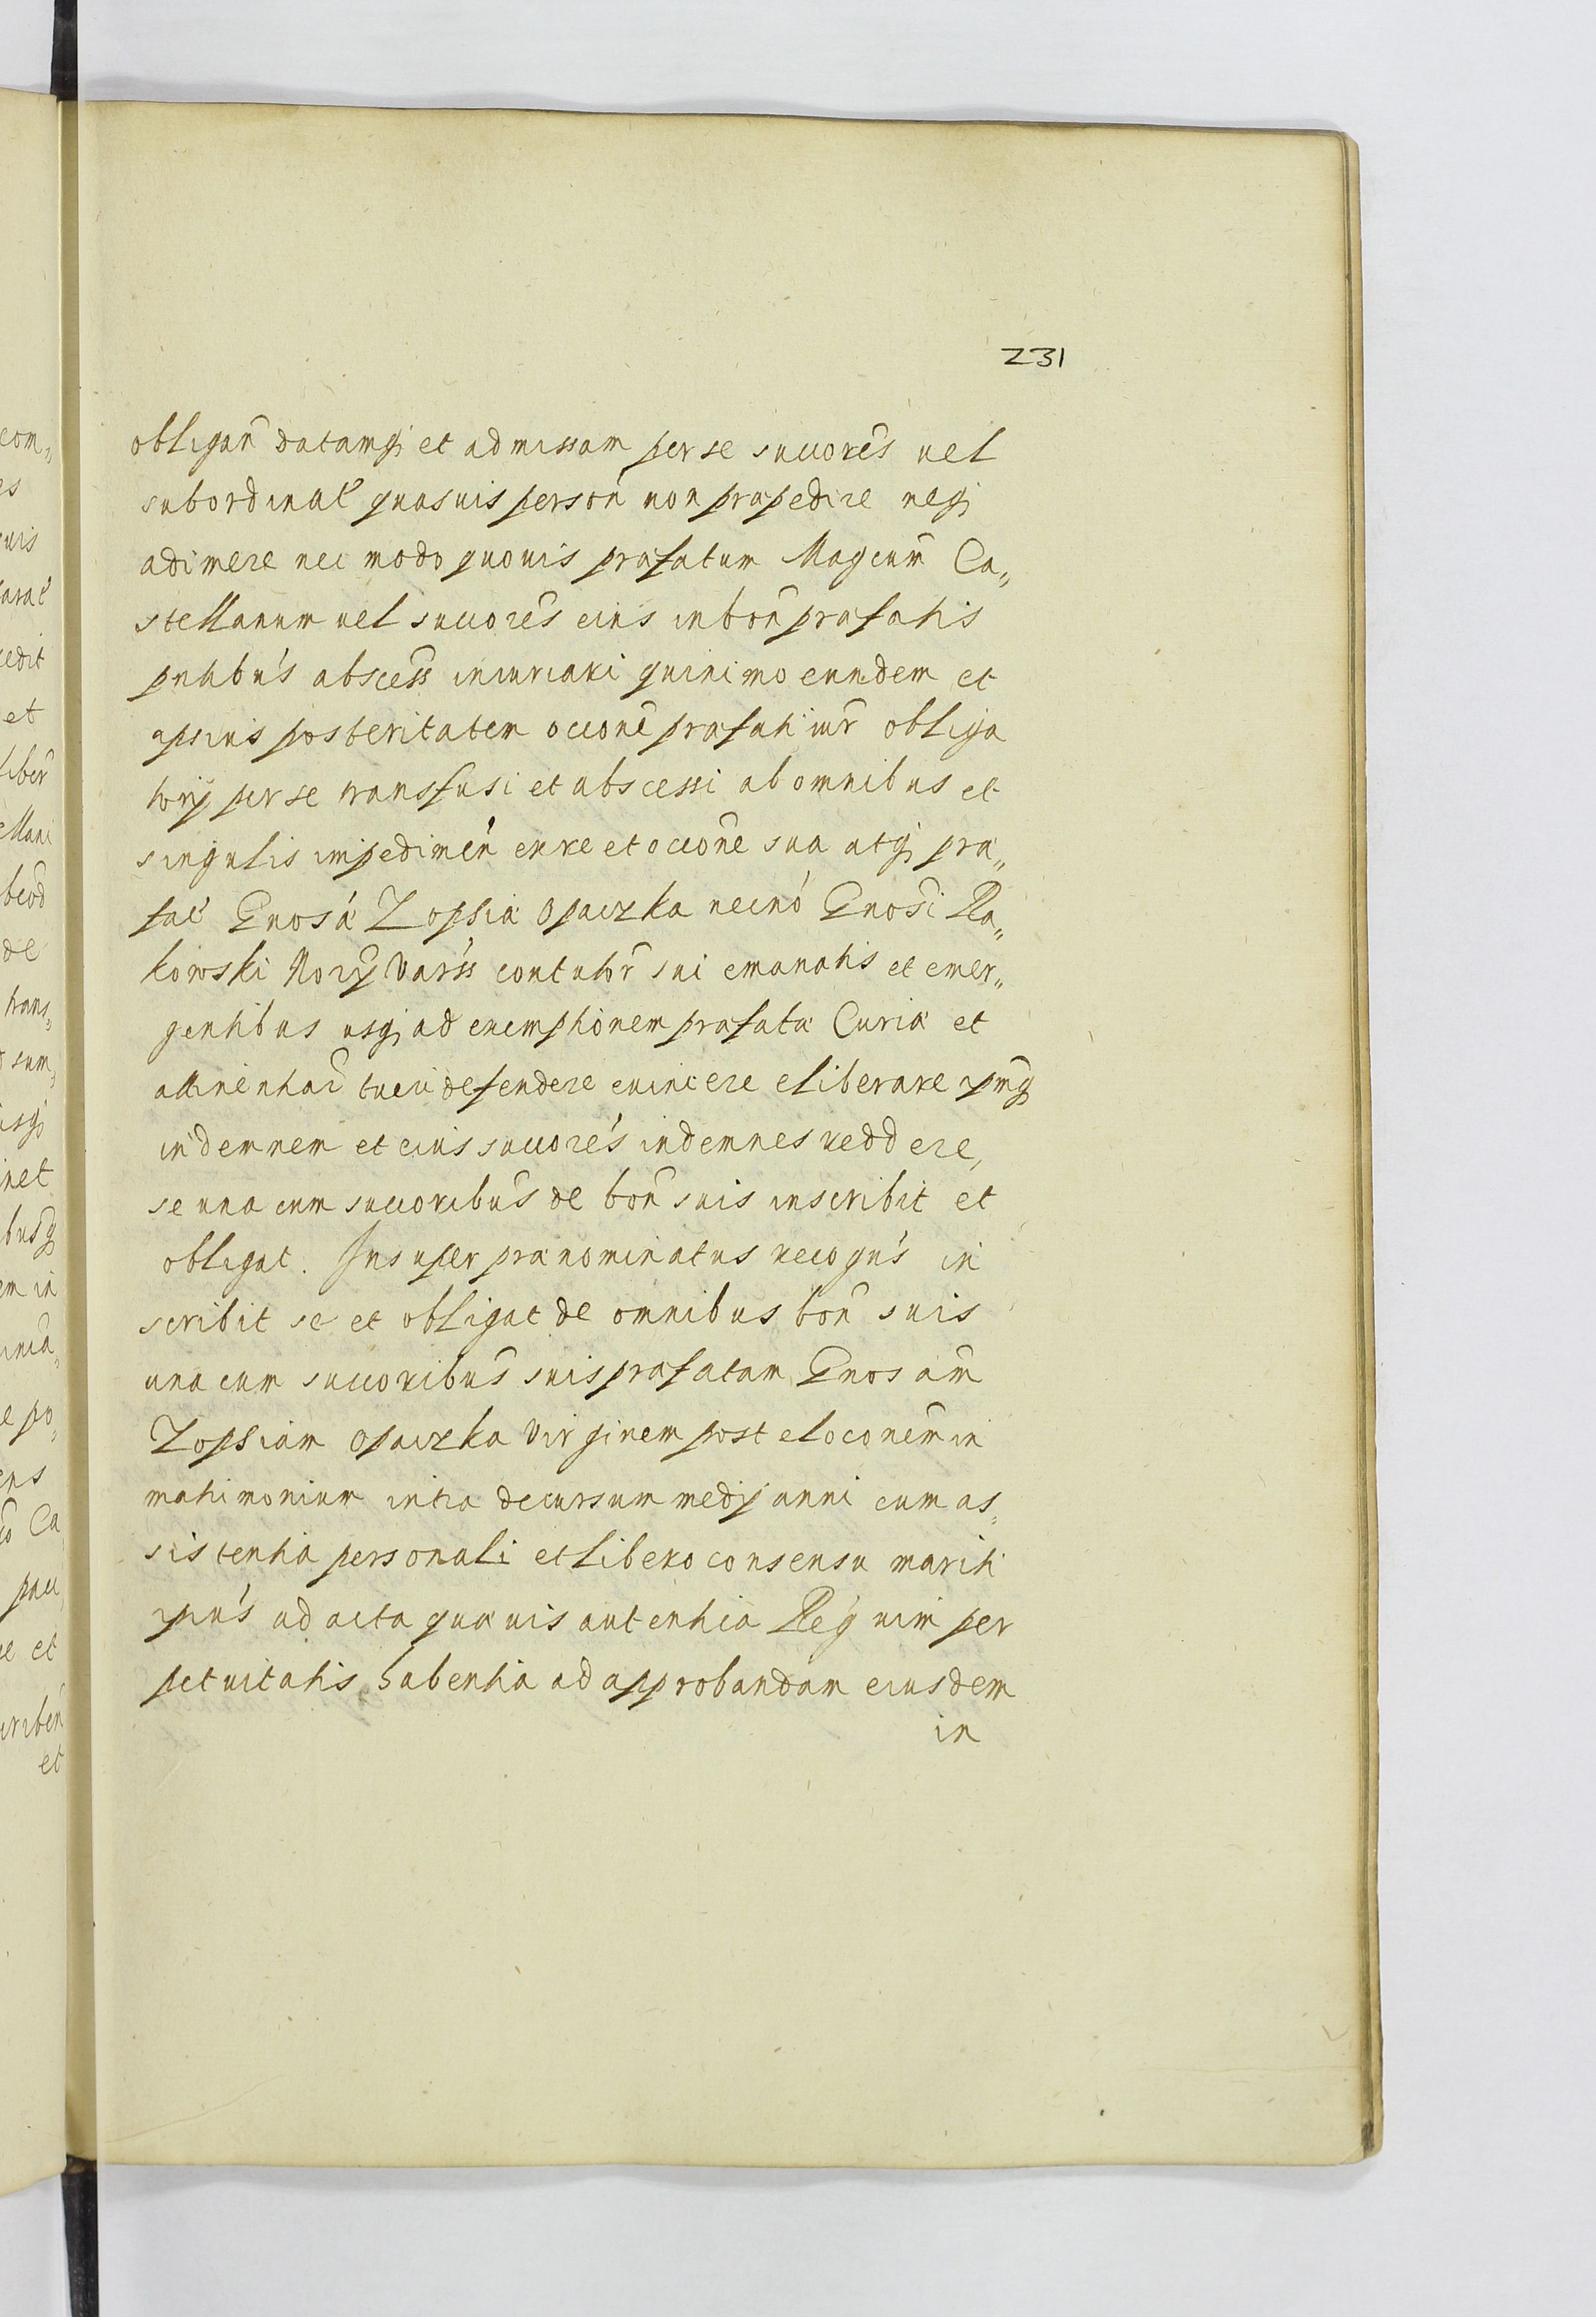 231
obligan̄ datamq; et admissam per se succorēs uel
subordinat̄ quasuis person̄ non præpedire neq;
adimere nec modo quouis præfatum Magcum̄ Ca„
stellanum uel succorēs eius in bon̄ præfatis
pntibūs abscess̄ iniuriari quinimo eundem et
ipsius posteritatem occone præfati iur̄ obliga
torij per se transfusi et abscessi ab omnibus et
singulis impedimen̄ ex re et occone sua atq; præ„
fat̄ Gnosæ Zophiæ Opaczka necnō Gnosi Ra„
kowski Nor̄ij Vars̄s contutor̄ sui emanatis et emer„
gentibus usq; ad exemptionem præfatæ Curiæ et
attinentiar̄ tueri defendere euincere eliberare ipmq;
indemnem et eius succorēs indemnes reddere,
se una cum succoribus̄ de bon̄ suis inscribit et
obligat. Insuper prænominatus recogn̄s in
scribit se et obligat de omnibus bon̄ suis
una cum succoribus̄ suis præfatam Gnosam̄
Zophiam Opaczka Virginem post eloconem̄ in
matrimonium intra decursum medij anni cum as„
sistentia personali et libero consensu mariti
ipiūs ad acta quæuis autentica Regnī uim per
petuitatis habentia ad approbandam eiusdem
in
com„
es
uis
arat̄
cedit
et
liber̄
ellani
de
trans„
sum„
usq;
inet
busq;
em in
e po„
ens
Ca
pau
e et
criben̄
et